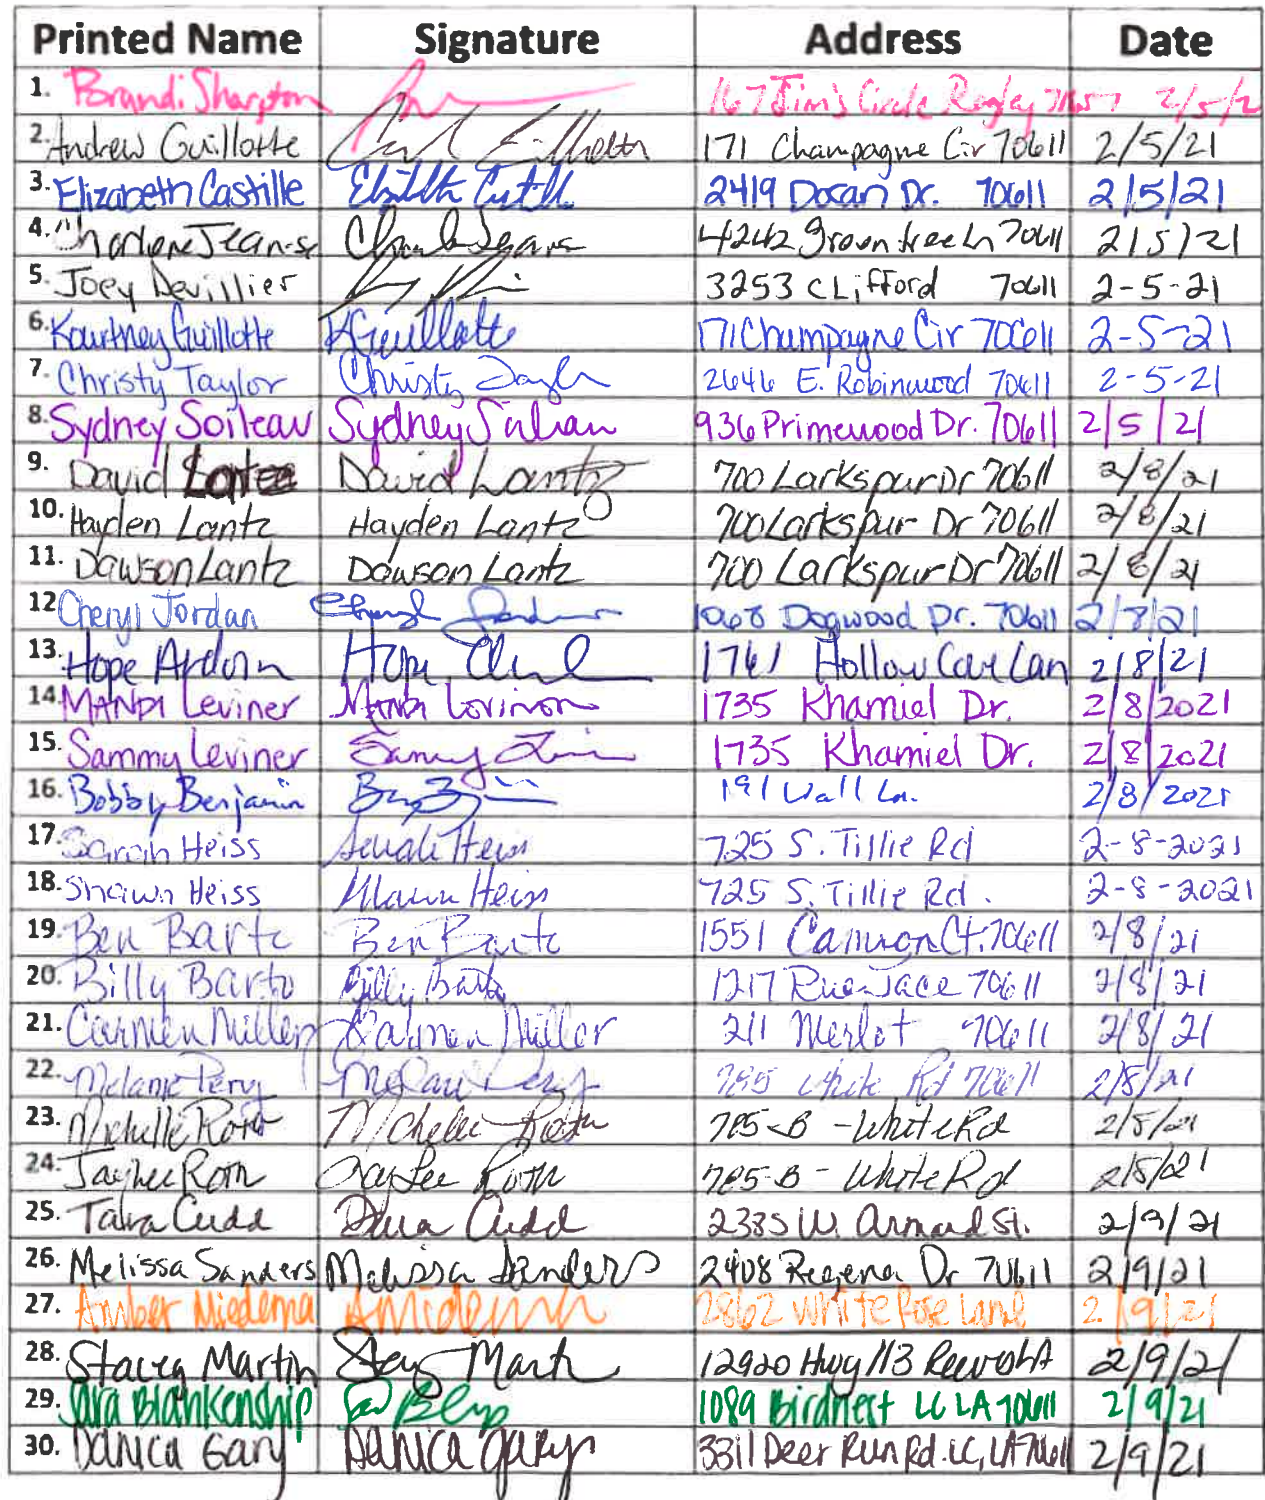 Printed Name Signature Address Date
1. Brandi Sharpton 167 Jim's Circle Ragley 70657 2/5/2
2. Andrew Guillotte 171 Champagne Cir 70611 2/5/21
3. Elizabeth Castille 2419 Dr. 70611 2/5/21
4. Charlene Jean 4242 Greentree Ln 70611 2/5/21
5. Joey Devillier 3253 CLifford 70611 2-5-21
6. Kourtney Guillotte KGuillotte 171 Champagne Cir 70611 2-5-21
7. Christy Taylor Christy Taylor 2646 E. Robinwood 70611 2-5-21
8. Sydney Soileau Sydney Soileau 936 Primewood Dr. 70611 2/5/21
9. David Lantz David Lantz 700 Larkspur Dr 70611 2/8/21
10. Hayden Lantz Hayden Lantz 700 Larkspur Dr 70611 2/8/21
11. Dawson Lantz Dawson Lantz 700 Larkspur Dr 70611 2/8/21
12 Cheryl Jordan Cheryl Jordan 1068 Dogwood Dr. 70611 2/8/21
13. Hope Ardoin Hope 1761 Hollow Cove Lan 2/8/21
14. MANDI Leviner MANDI 1735 Khamiel Dr. 2/8/2021
15. Sammy Leviner Sammy 1735 Khamiel Dr. 2/8/2021
16. Bobby Benjamin 191 Wall Ln. 2/8/2021
17. Sarah Heiss Sarah Heiss 725 S. Tillie Rd 2-8-2021
18. Shawn Heiss Shawn Heiss 725 S. Tillie Rd. 2-8-2021
19. Ben Barto Ben Barto 1551 Ct. 70611 2/8/21
20. Billy Barto Billy Barto 1217 Rue Jace 70611 2/8/21
21. Carmen Miller Carmen Miller 211 Merlot 70611 2/8/21
22. Melanie Perry Melanie Perry 785 White Rd 70611 2/8/21
23. Michelle Roth Michelle Roth 785-B - White Rd 2/8/21
24. Jaylee Roth Jaylee Roth 785-B - White Rd 2/8/21
25. Tara Cudd Tara Cudd 2385 W. Armand St. 2/9/21
26. Melissa Sanders Melissa Sanders 2408 Regena Dr 70611 2/9/21
27. Amber Miedema AMiedema 2862 White Rose Lane 2/9/21
28. Stacey Martin Stacey Martin 12920 Hwy 113 Reeves LA 2/9/21
29. Sara Blankenship 1089 Birdnest LC LA 70611 2/9/21
30. Danica Gary Danica Gary 3311 Deer Run Rd. LC, LA 70611 2/9/21